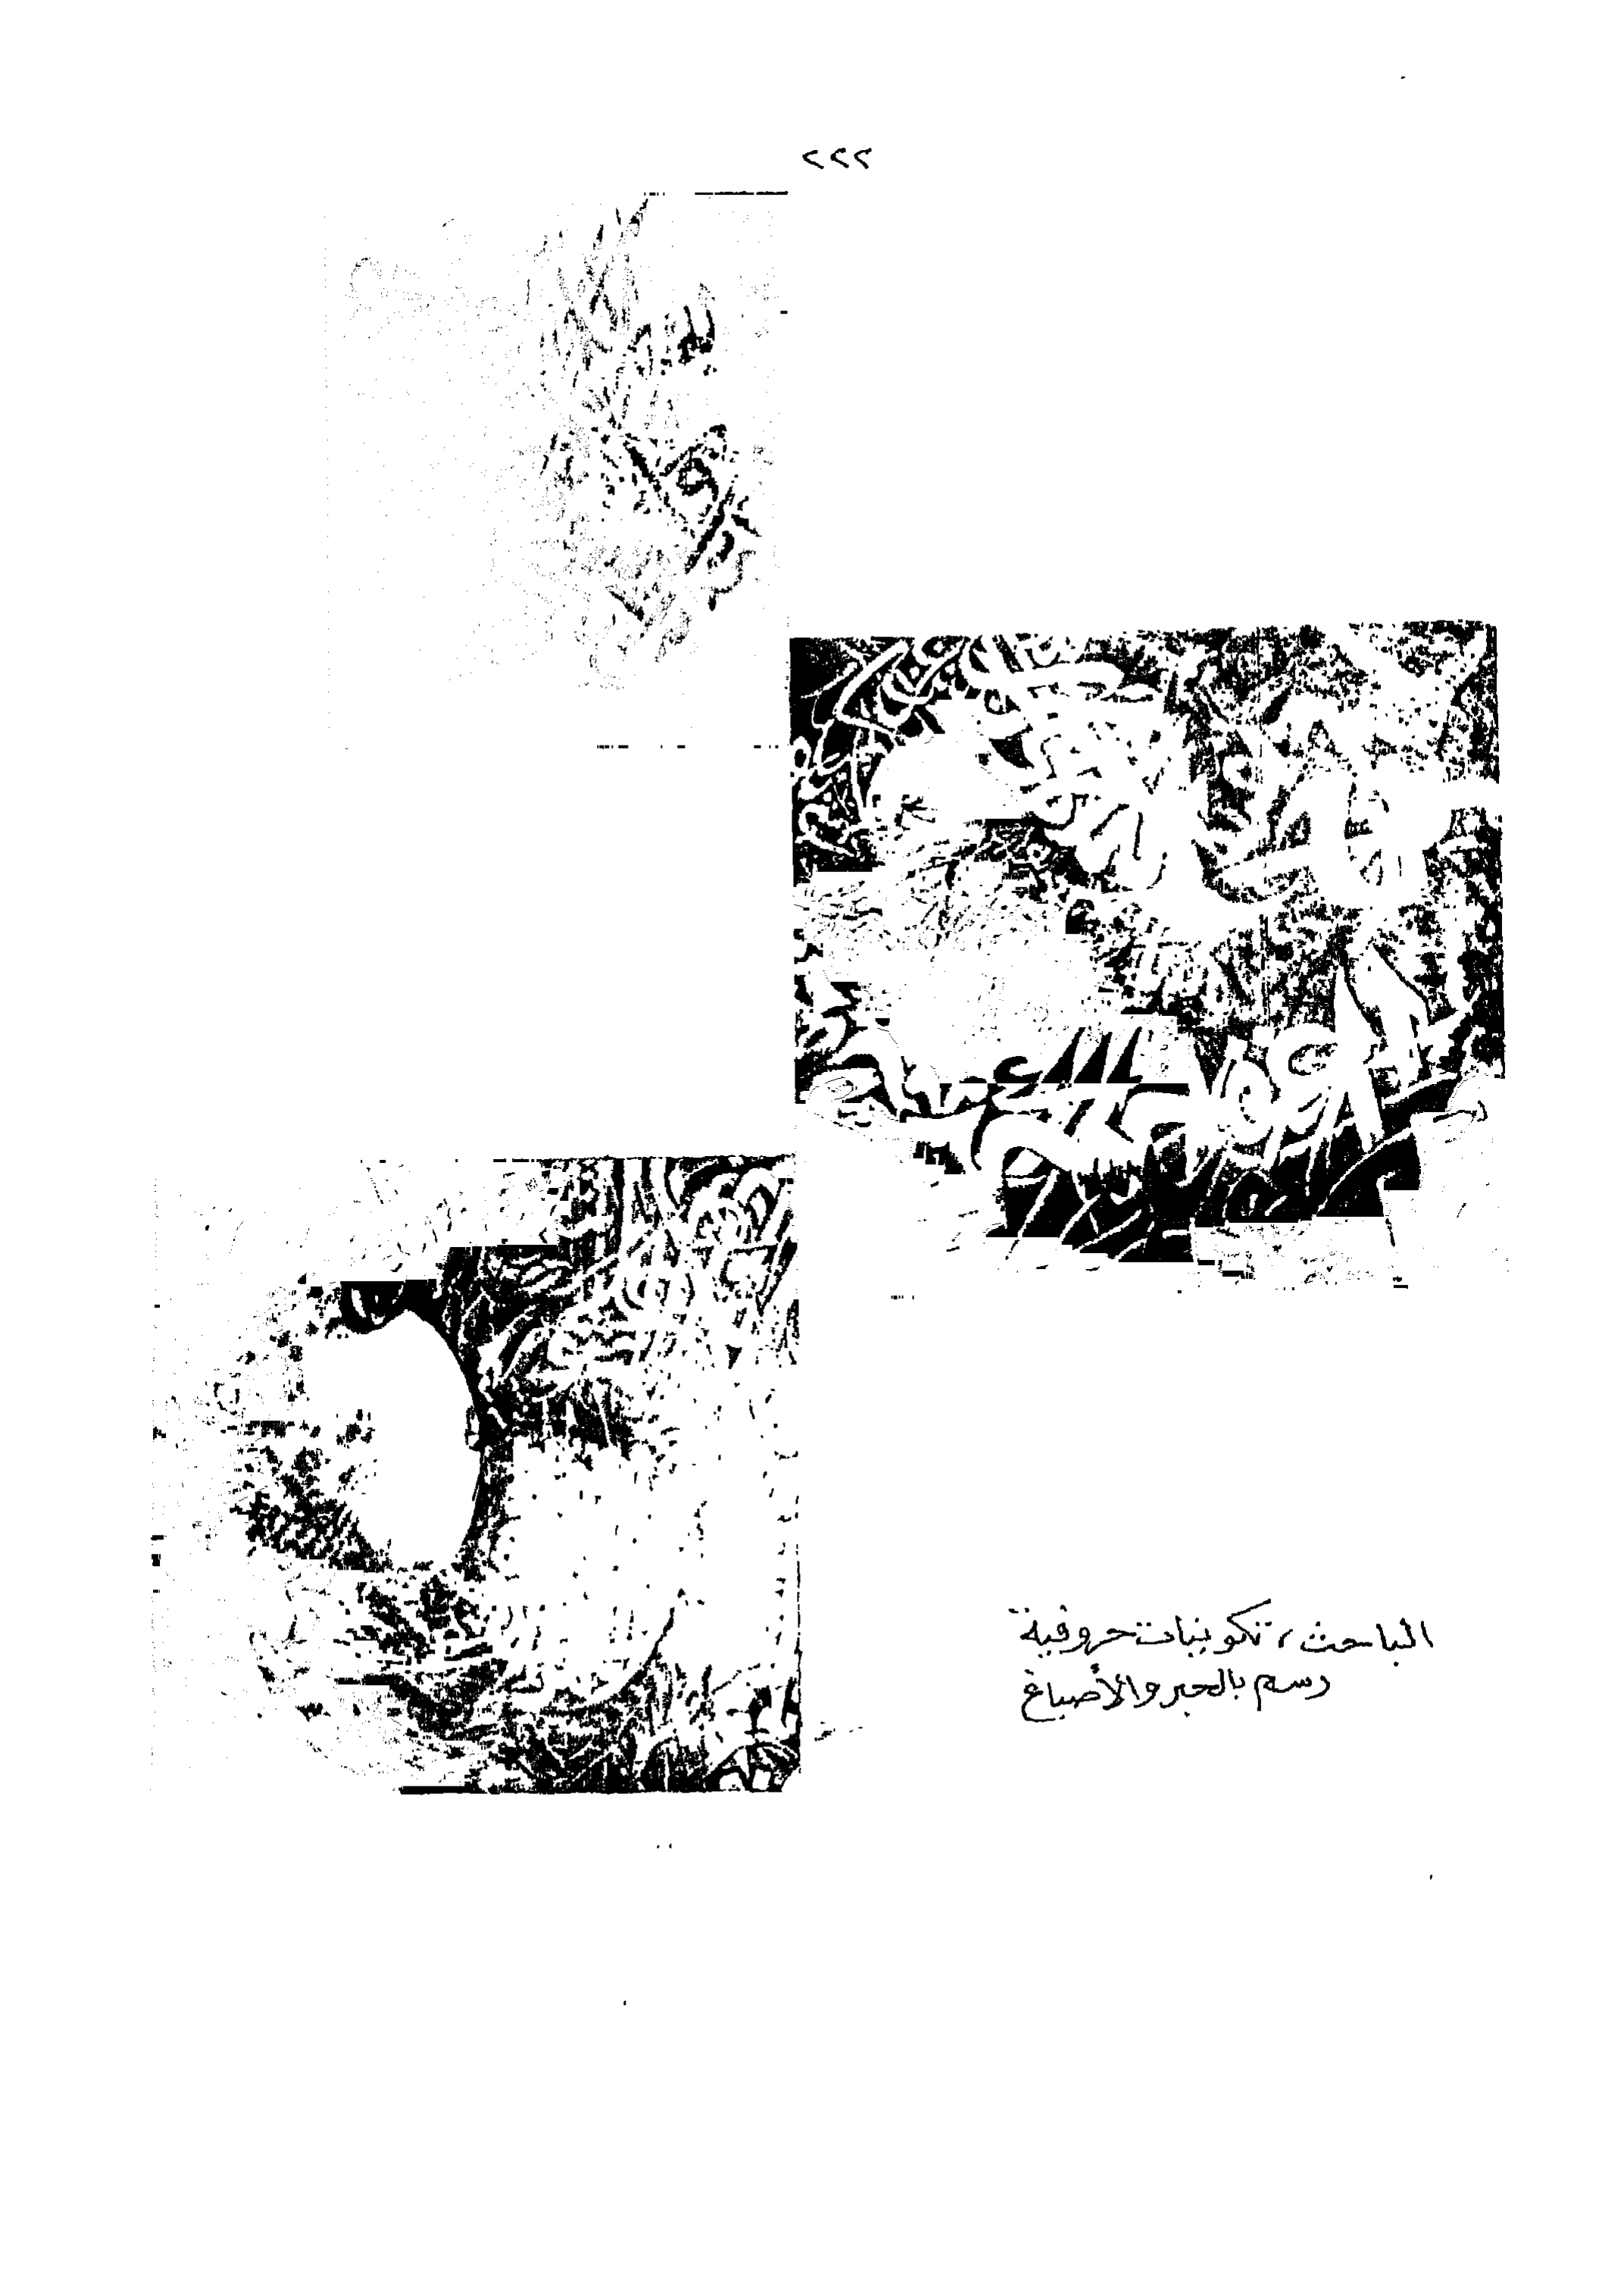 ٢٢٢
الباحث، تكوينات حروفية
رسم بالحبر والأصباغ